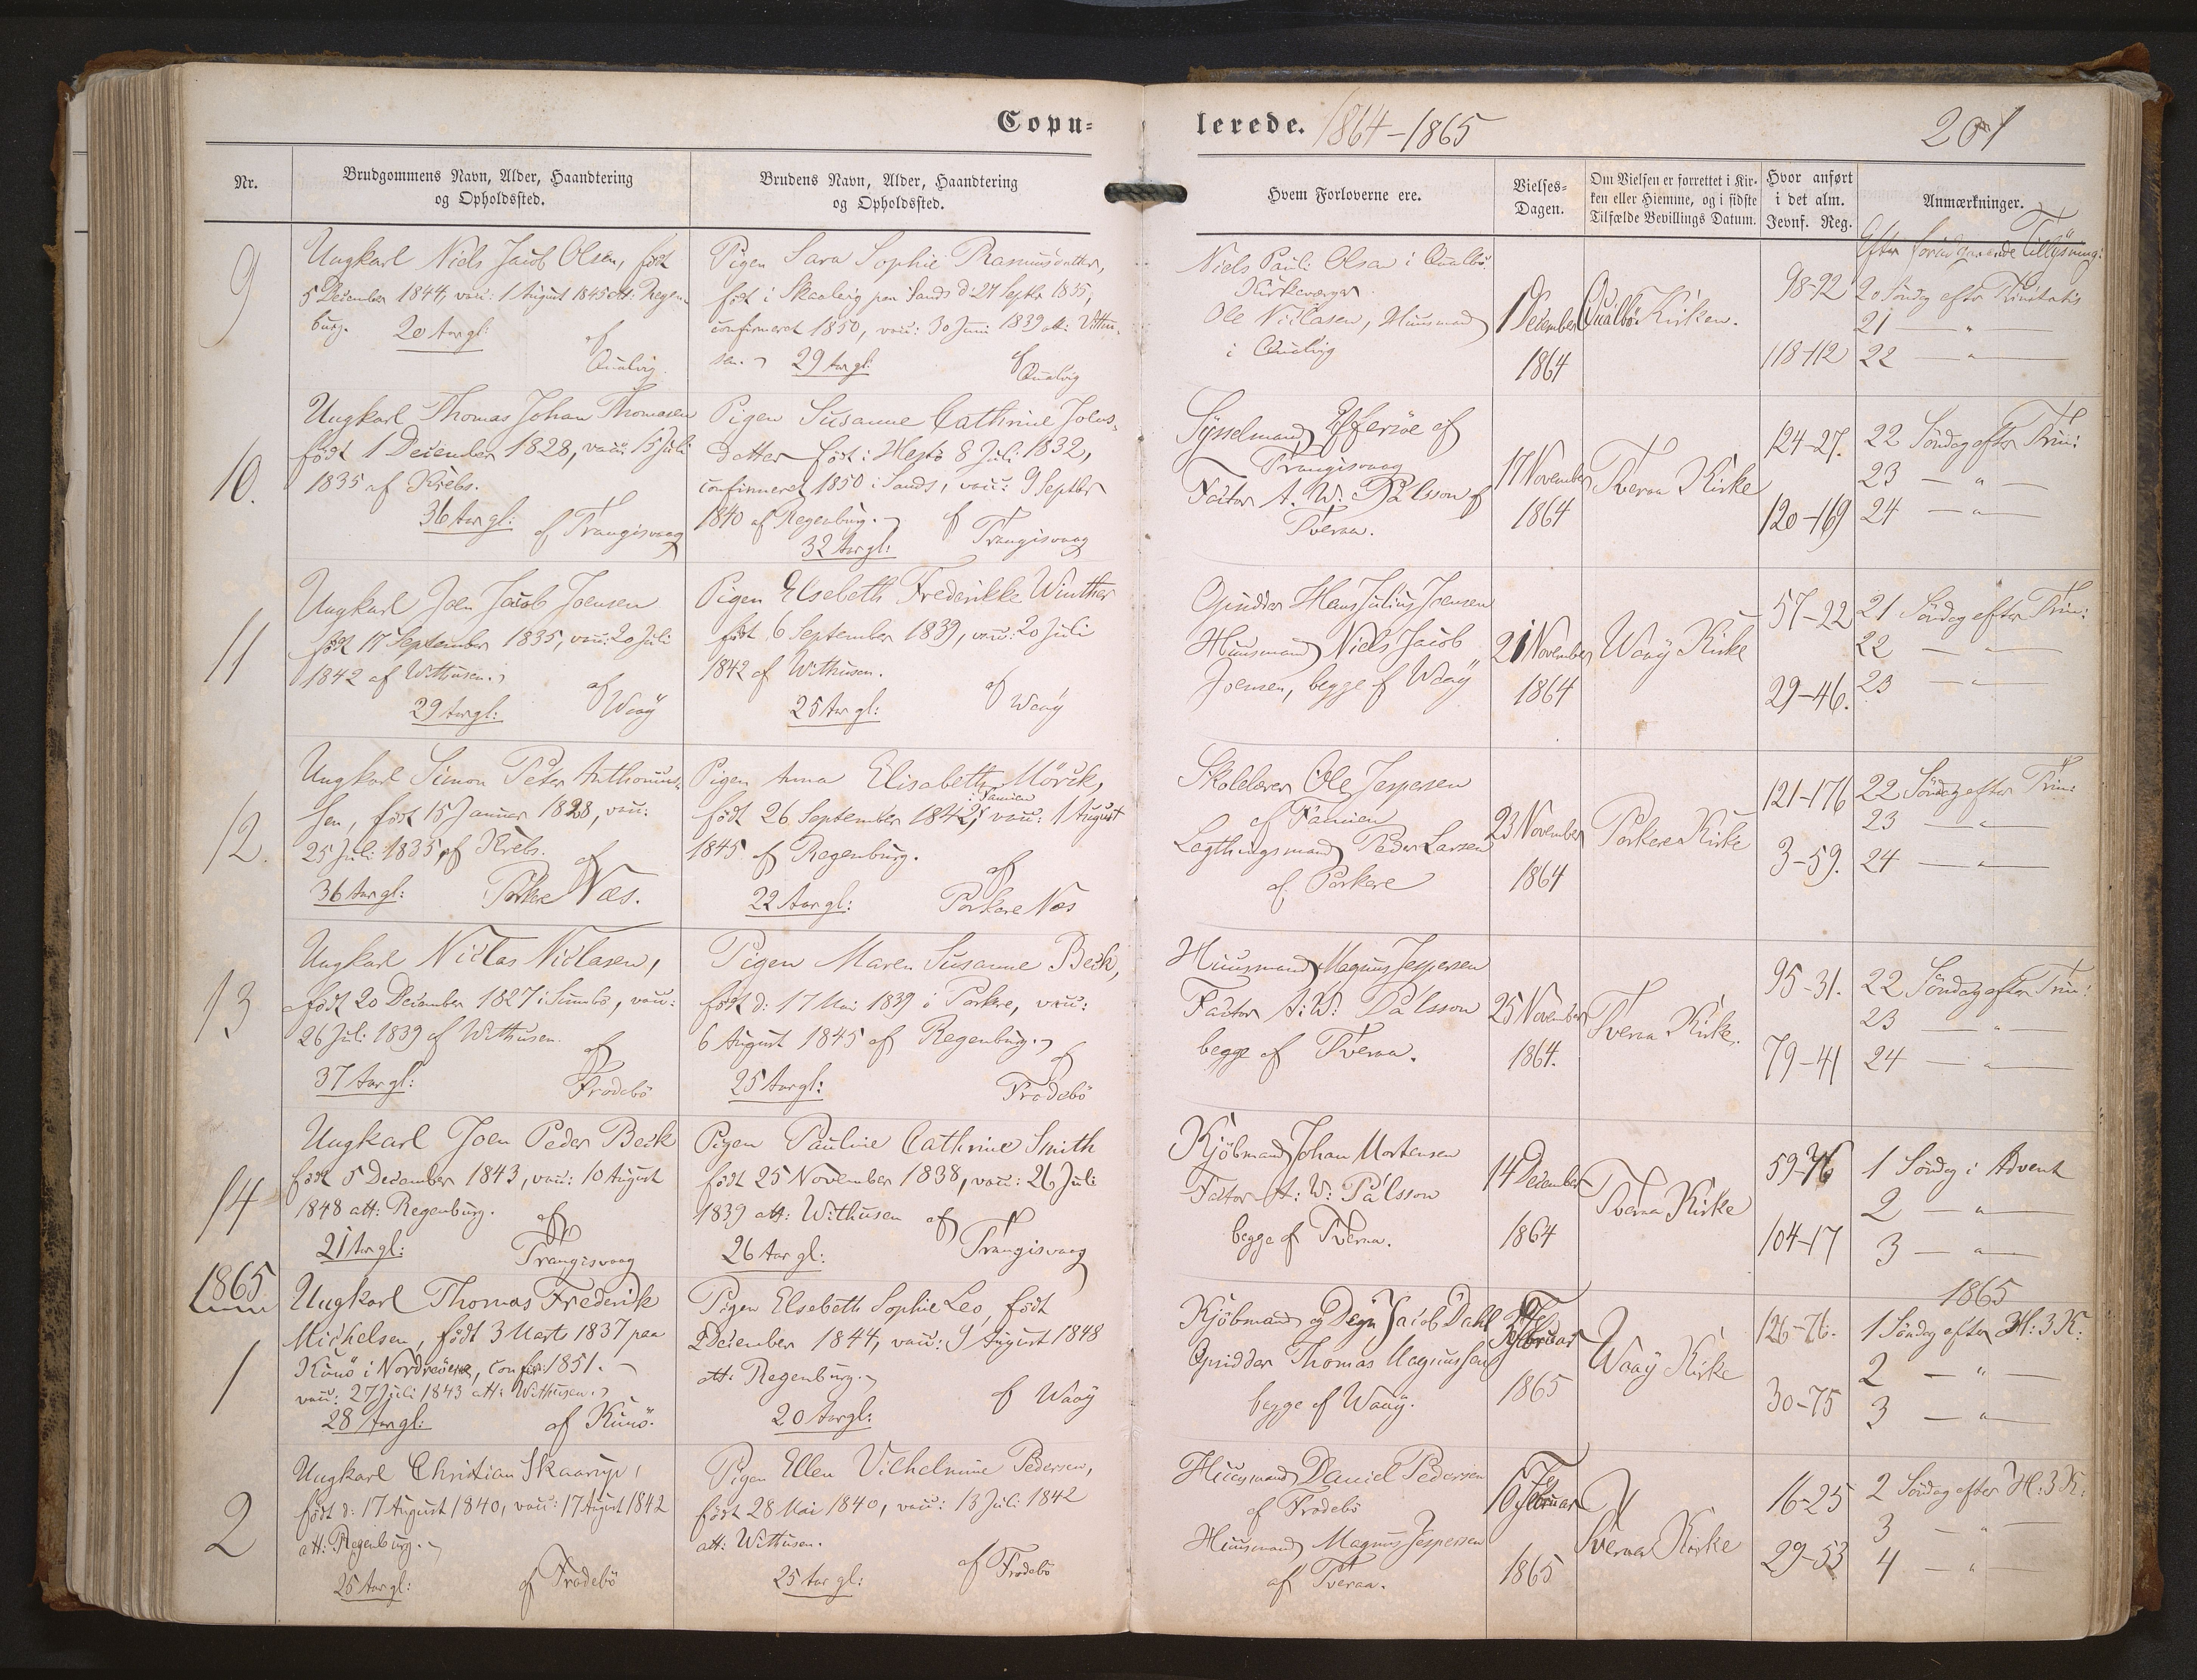 Copu-
lerede. 1864-1865
201
Nr.
Brudgommens Navn, Alder, Haandtering
og Opholdssted.
Brudens Navn, Alder, Haandtering
og Opholdssted.
Hvem Forloverne ere.
Vielses-
Dagen.
Om Vielsen er forrettet i Kir-
ken eller Hiemme, og i sidste
Tilfælde Bevillings Datum.
Hvor anført
i det alm.
Jevnf. Reg.
Anmærkninger.
Efter foregaaende Tillysning:
9
Ungkarl Niels Jacob Olsen, født
5 December 1844, vacc: 1 August 1845 att: Regen-
burg. 20 Aar gl:
af
Qualvig.
Pigen Sara Sophie Rasmusdatter,
født i Skaalevig paa Sandø d: 27 Septbr 1835,
confirmeret 1850, vacc: 30 Juni 1839 att: Withu-
sen. 29 Aar gl:
af
Qualvig
Niels Pauli Olsen i Qualbö
Kirkeværger
Ole Niclasen, Huusmand
i Qualvig
1 December
1864
Qualbö Kirken.
98-92
118-112
20 Söndag efter Trinitatis
21 — " —
22 — " —
10.
Ungkarl Thomas Johan Thomasen
født 1 December 1828, vacc: 15 Juli
1835 af Krebs.
36 Aar gl: af Trangisvaag
Pigen Susanne Cathrine Joens-
datter født i Hestö 8 Juli 1832,
confirmeret 1850 i Sands, vacc: 9 Septbr
1840 af Regenburg. af
32 Aar gl: Trangisvaag
Sysselmand Effersöe af
Trangisvaag
Factor A. W. Pálsson af
Tveraa.
17 November
1864
Tveraa Kirke
124-27.
120-169
22 Söndag efter Trin:
23 — " —
24 — " —
11
Ungkarl Joen Jacob Joensen
født 17 September 1835, vacc: 20 Juli
1842 af Withusen.
29 Aar gl: af Waaÿ
Pigen Elsebeth Frederikke Winther
født 6 September 1839, vacc: 20 Juli
1842 af Withusen.
25 Aar gl: af Waaÿ
Opsidder Hans Julius Joensen
Huusmand Niels Jacob
Joensen, begge af Waaÿ
21 November
1864
Waaÿ Kirke
57-22
29-46.
21 Söndag efter Trin:
22 — " —
23 — " —
12.
Ungkarl Simon Peter Anthonius-
sen, født 15 Januar 1828, vacc:
25 Juli 1835 af Krebs. af
36 Aar gl: Porkere Næs.
Pigen Anna Elisabeth Mörck,
i Famien
født 26 September 1842, vacc: 1 August
1845 af Regenburg.
af
22 Aar gl: Porkere Næs
Skolelærer Ole Jespersen
af Famien
Lagthingsmand Peder Larsen
af Porkere
23 November
1864
Porkere Kirke
121-176
3-59.
22 Söndag efter Trin:
23 — " —
24 — " —
13
Ungkarl Niclas Niclasen,
født 20 December 1827 i Sumbö, vacc:
26 Juli 1839 af Withusen.
af
37 Aar gl: Frodebö
Pigen Maren Susanne Beck,
født d: 17 Mai 1839 i Porkere, vacc:
6 August 1845 af Regenburg.
af
25 Aar gl: Frodebö
Huusmand Magnus Jespersen
Factor A: W: Pálsson
begge af Tveraa.
25 November
1864.
Tveraa Kirke.
95-31.
79-41
22 Söndag efter Trin:
23 — " —
24 — " —
14
Ungkarl Joen Peder Beck
født 5 December 1843, vacc: 10 August
1848 att: Regenburg. af
21 Aar gl: Trangisvaag
Pigen Pauline Cathrine Smith
født 25 November 1838, vacc: 26 Juli
1839 att: Withusen af
26 Aar gl: Trangisvaag
Kjöbmand Johan Mortensen
Factor A: W: Pálsson
begge af Tveraa.
14 December
1864
Tveraa Kirke
59-76
104-17
1 Söndag i Advent
2 — " —
3 — " —
1865
1
Ungkarl Thomas Frederik
Michelsen, født 3 Marts 1837 paa
Kunö i Norderöerne, confir: 1851.
vacc: 27 Juli 1843 att: Withusen.
28 Aar gl: af Kunö.
Pigen Elsebeth Sophie Leo, født
2 December 1844, vacc: 9 August 1848
att: Regenburg.
20 Aar gl: af Waaÿ
Kjöbmand og Degn Jacob Dahl
Opsidder Thomas Magnussen
begge af Waaÿ.
Februar
1865
Waaÿ Kirke
126-76.
30-75
1865
1 Söndag efter H: 3 K:
2 — " —
3 — " —
2
Ungkarl Christian Skaarup,
født d: 17 August 1840, vacc: 17 August 1842
att: Regenburg.
25 Aar gl: af Frodebö
Pigen Ellen Vilhelmine Pedersen,
født 28 Mai 1840, vacc: 13 Juli 1842
att: Withusen.
25 Aar gl: af Frodebö
Huusmand Daniel Pedersen
af Frodebö
Huusmand Magnus Jespersen
af Tveraa.
16 Februar
1865
Tveraa Kirke
16-25
29-53
2 Söndag efter H: 3 K:
3 — " —
4 — " —